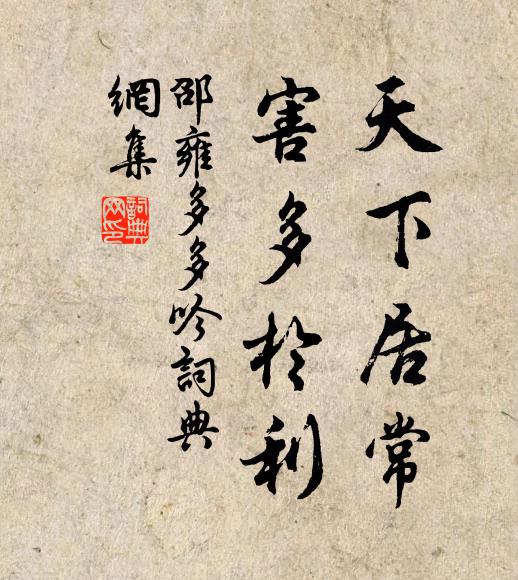 天下居常
害多於利
邵雍多多吟詞典
網集
詞典網印